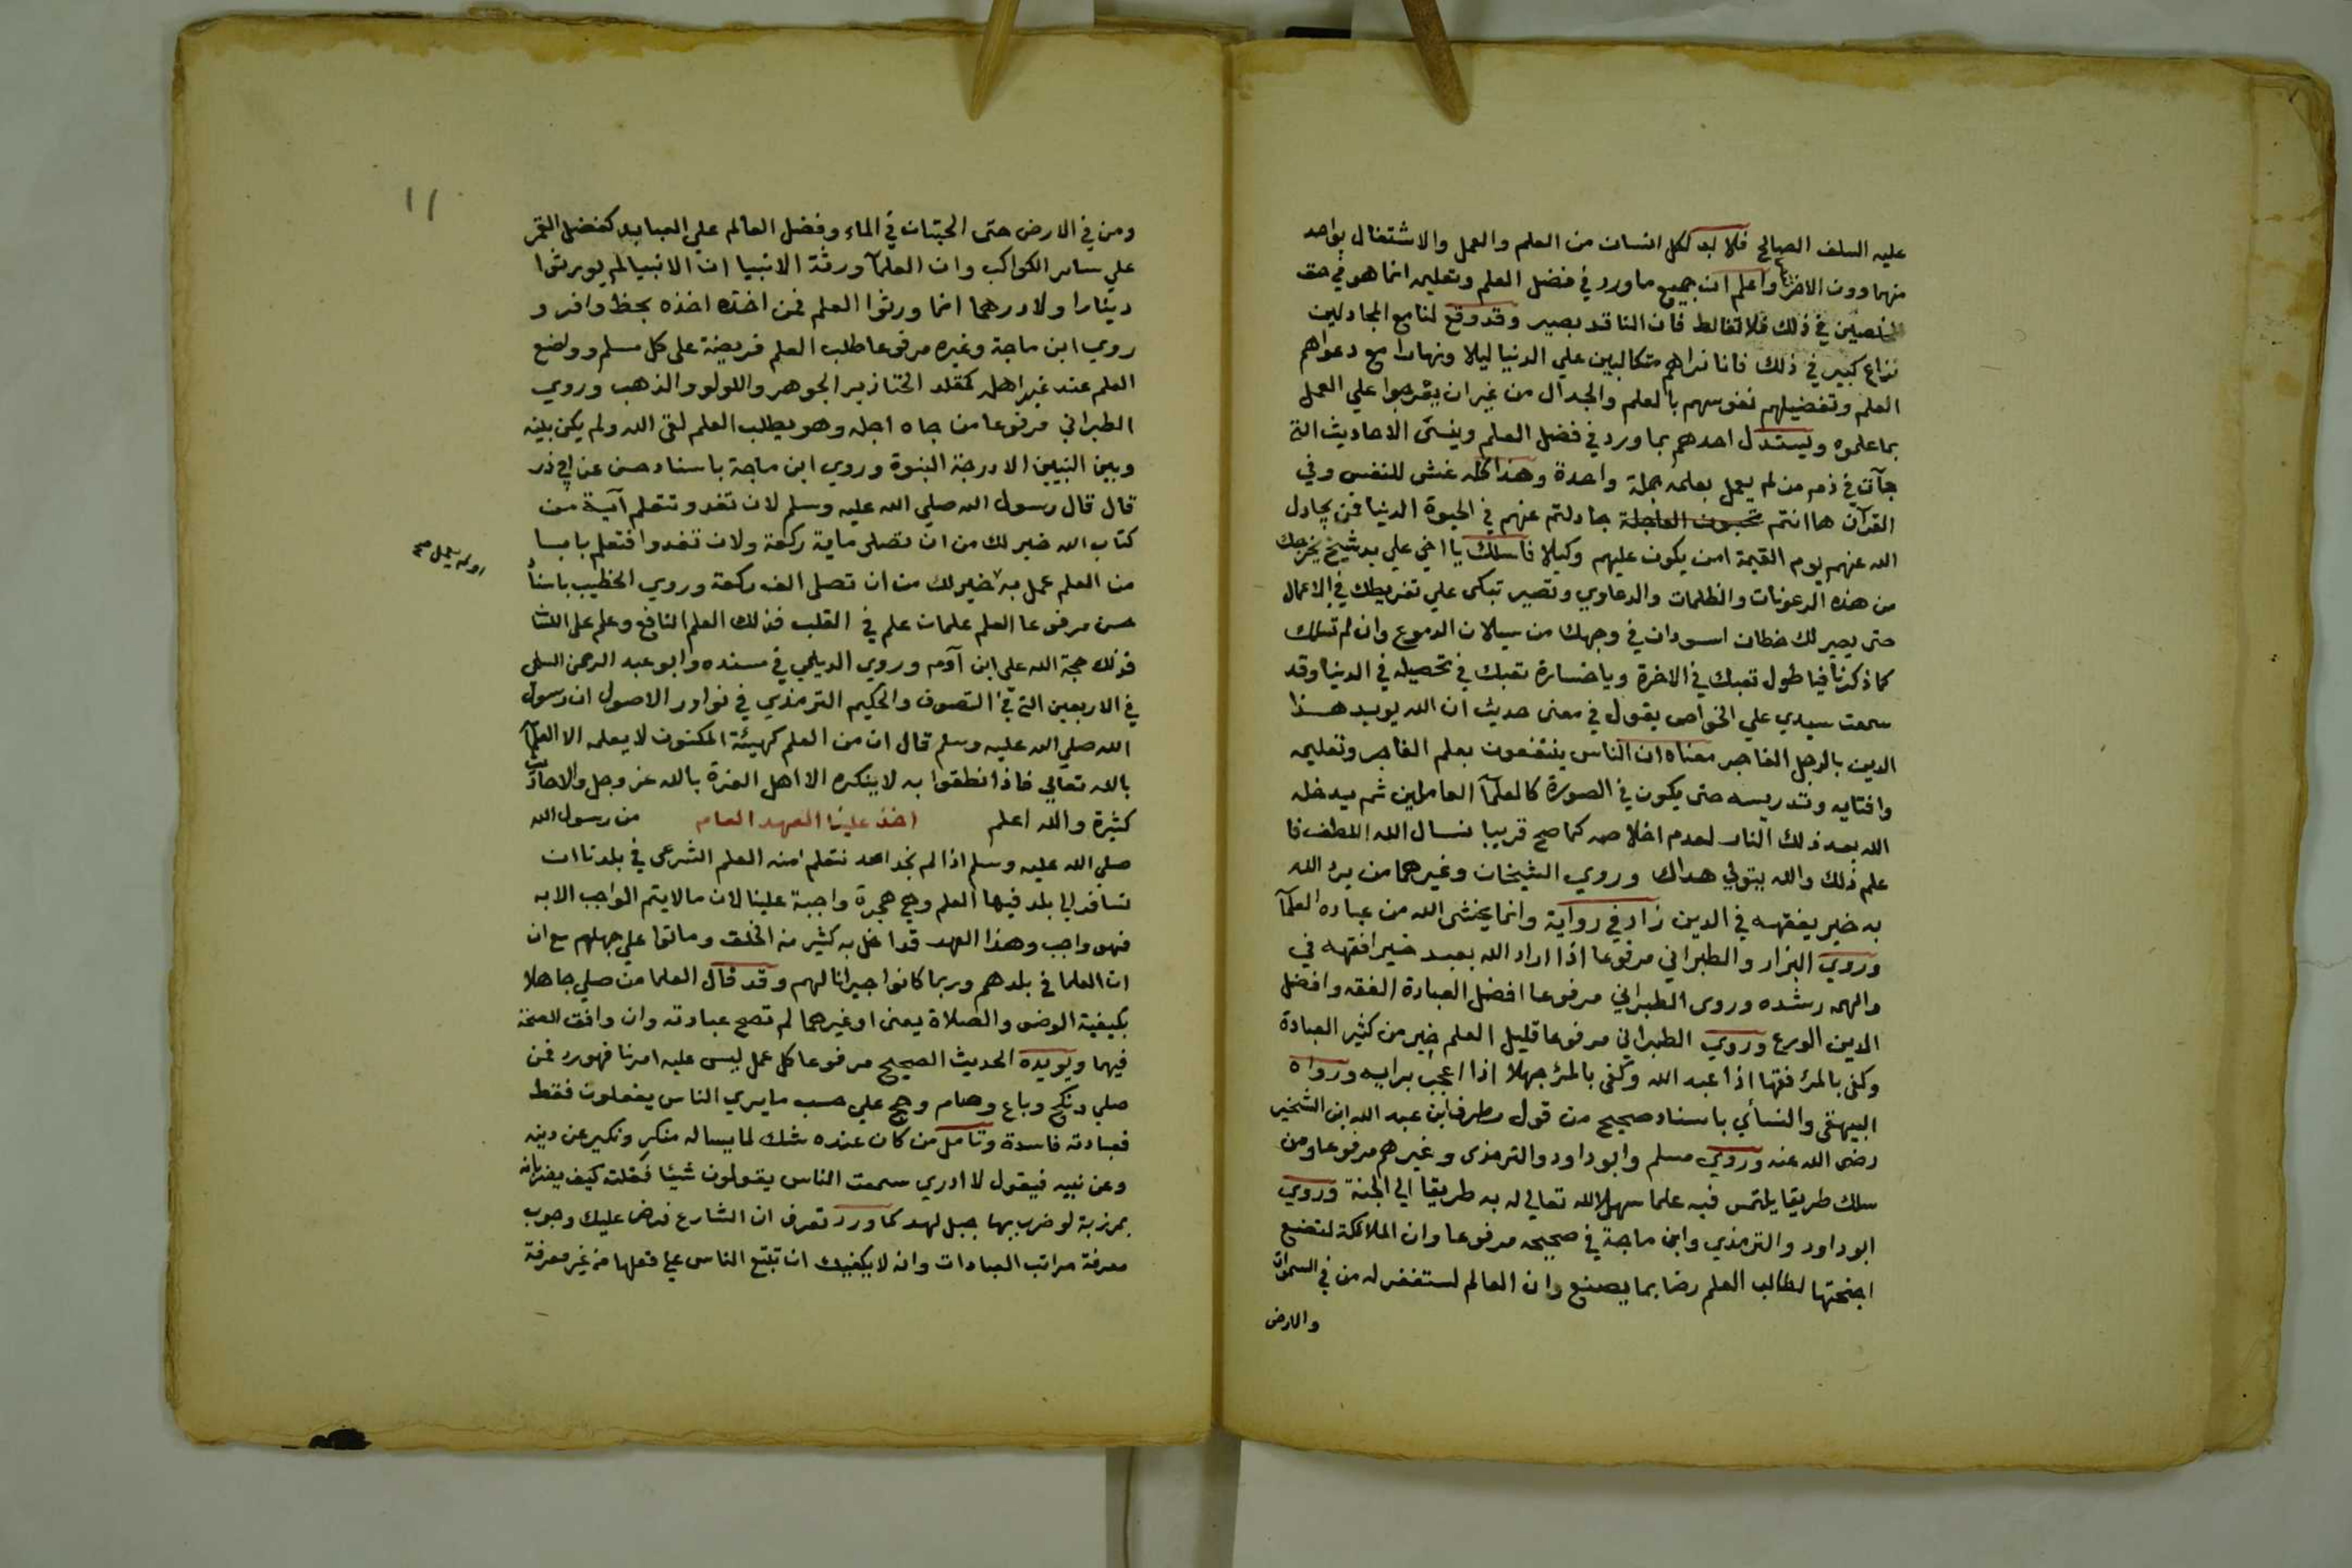 عليه السلف الصالح فلا بد لكل انسان من العلم والعمل والاشتغال بواحد
منهما دون الاخر واعلم ان جميع ما ورد في فضل العلم وتعليمه انما هو في حق
المخلصين في ذلك فلا تغالط فان الناقد بصير وقد وقع لنا مع المجادلين
نزاع كبير في ذلك فانا نراهم متكالبين علي الدنيا ليلا ونهارا مع دعواهم
العلم وتفضيلهم نفوسهم بالعلم والجدال من غير ان يعرجوا علي العمل
بما علموه ويستدل احدهم بما ورد في فضل العلم وينسى الاحاديث التي
جآت في ذم من لم يعمل بعلمه جملة واحدة وهذا كله غش للنفس وفي
القرآن ها انتم تحبون العاجلة جادلتم عنهم في الحيوة الدنيا فمن يجادل
الله عنهم يوم القيمة امن يكون عليهم وكيلا فاسلك يا اخي علي يد شيخ يخرجك
من هذه الرعونات والظلمات والدعاوي وتصير تبكى علي تفريطك في الاعمال
حتى يصير لك خطان اسودان في وجهك من سيلان الدموع وان لم تسلك
كما ذكرنا فيا طول تعبك في الاخرة ويا خسارة تعبك في تحصيله في الدنيا وقد
سمعت سيدي علي الخواص يقول في معنى حديث ان الله يويد هذا
الدين بالرجل الفاجر معناه ان الناس ينتفعون بعلم الفاجر وتعليمه
وافتايه وتدريسه حتى يكون في الصورة كالعلمآ العاملين ثم يدخله
الله بعد ذلك النار لعدم اخلاصه كما صح قريبا نسال الله اللطف فا
علم ذلك والله يتولي هداك وروي الشيخان وغيرهما من يرد الله
به خير يفقهه في الدين زاد في رواية وانما يخشى الله من عباده العلمآ
وروي البزار والطبراني مرفوعا اذا اراد الله بعبد خير افقهه في
والهمه رشده وروى الطبراني مرفوعا افضل العبادة الفقه وافضل
الدين الورع وروي الطبراني مرفوعا قليل العلم خير من كثير العبادة
وكفى بالمرء فقها اذا عبد الله وكفى بالمرء جهلا اذا اعجب برايه ورواه
البيهقى والنسائي باسناد صحيح من قول مطرف ابن عبد الله ابن الشخير
رضى الله عنه وروي مسلم وابو داود والترمذى وغيرهم مرفوعا ومن
سلك طريقا يلتمس فيه علما سهل الله تعالي له به طريقا الي الجنة وروي
ابو داود والترمذي وابن ماجة في صحيحه مرفوعا وان الملائكة لتضع
اجنحتها لطالب العلم رضا بما يصنع وان العالم لستغفر له من في السموات
والارض
١١
ومن في الارض حتى الحيتان في الماء وفضل العالم علي العبابد كفضل القمر
علي ساير الكواكب وان العلمآ ورثة الانبيا ان الانبيا لم يورثوا
دينارا ولا درهما انما ورثوا العلم فمن اخذه اخذه بحظ وافر و
روي ابن ماجة وغيره مرفوعا طلب العلم فريضة على كل مسلم وواضع
العلم عند غير اهله كمقلد الخنازير الجوهر واللولو والذهب وروي
الطبراني مرفوعا من جاه اجله وهو يطلب العلم لقى الله ولم يكن بينه
وبين النبيين الا درجة النبوة وروي ابن ماجة باسناد حسن عن ابي ذر
قال قال رسول الله صلي الله عليه وسلم لان تغدو تتعلم آية من
كتاب الله خير لك من ان تصلى ماية ركعة ولان تغدوا فتعلم بابا
من العلم عمل به خير لك من ان تصلى الف ركعة وروي الخطيب باسنا
او لم يعمل صح
حسن مرفوعا العلم علمان علم في القلب فذلك العلم النافع وعلم على اللسا
فذلك حجة الله علي ابن آدم وروي الديلمي في مسنده وابو عبد الرحمن السلمى
في الاربعين التي في التصوف والحكيم الترمذي في نوادر الاصول ان رسول
الله صلي الله عليه وسلم قال ان من العلم كهيئة المكنون لا يعلمه الا العلمآ
بالله تعالي فاذا نطقوا به لا ينكره الا اهل الغرة بالله عز وجل والاحاديث
كثيرة والله اعلم اخذ علينا العهد العام من رسول الله
صلي الله عليه وسلم اذا لم نجد احد نتعلم منه العلم الشرعى في بلدنا ان
نسافر الي بلد فيها العلم وهي هجرة واجبة علينا لان ما لا يتم الواجب الا به
فهو واجب وهذا العهد قد اخل به كثير من الخلق وماتوا علي جهلهم مع ان
ان العلما في بلدهم وربما كانوا جيرانا لهم وقد قال العلما من صلي جاهلا
بكيفية الوضو والصلاة يعنى او غيرهما لم تصح عبادته وان وافق الصحة
فيها ويويده الحديث الصحيح مرفوعا كل عمل ليس عليه امرنا فهو رد فمن
صلي ونكح وباع وصام وحج علي حسب ما يري الناس يفعلون فقط
فعبادته فاسدة وتامل من كان عنده شك لما يساله منكر ونكير عن دينه
وعن نبيه فيقول لا ادري سمعت الناس يقولون شيئا فقلته كيف يضربانه
بمرزبة لو ضرب بها جبل لهد كما ورد تعرف ان الشارع فرض عليك وجوب
معرفة مراتب العبادات وانه لا يكفيك ان تتبع الناس علي فعلها من غير معرفة